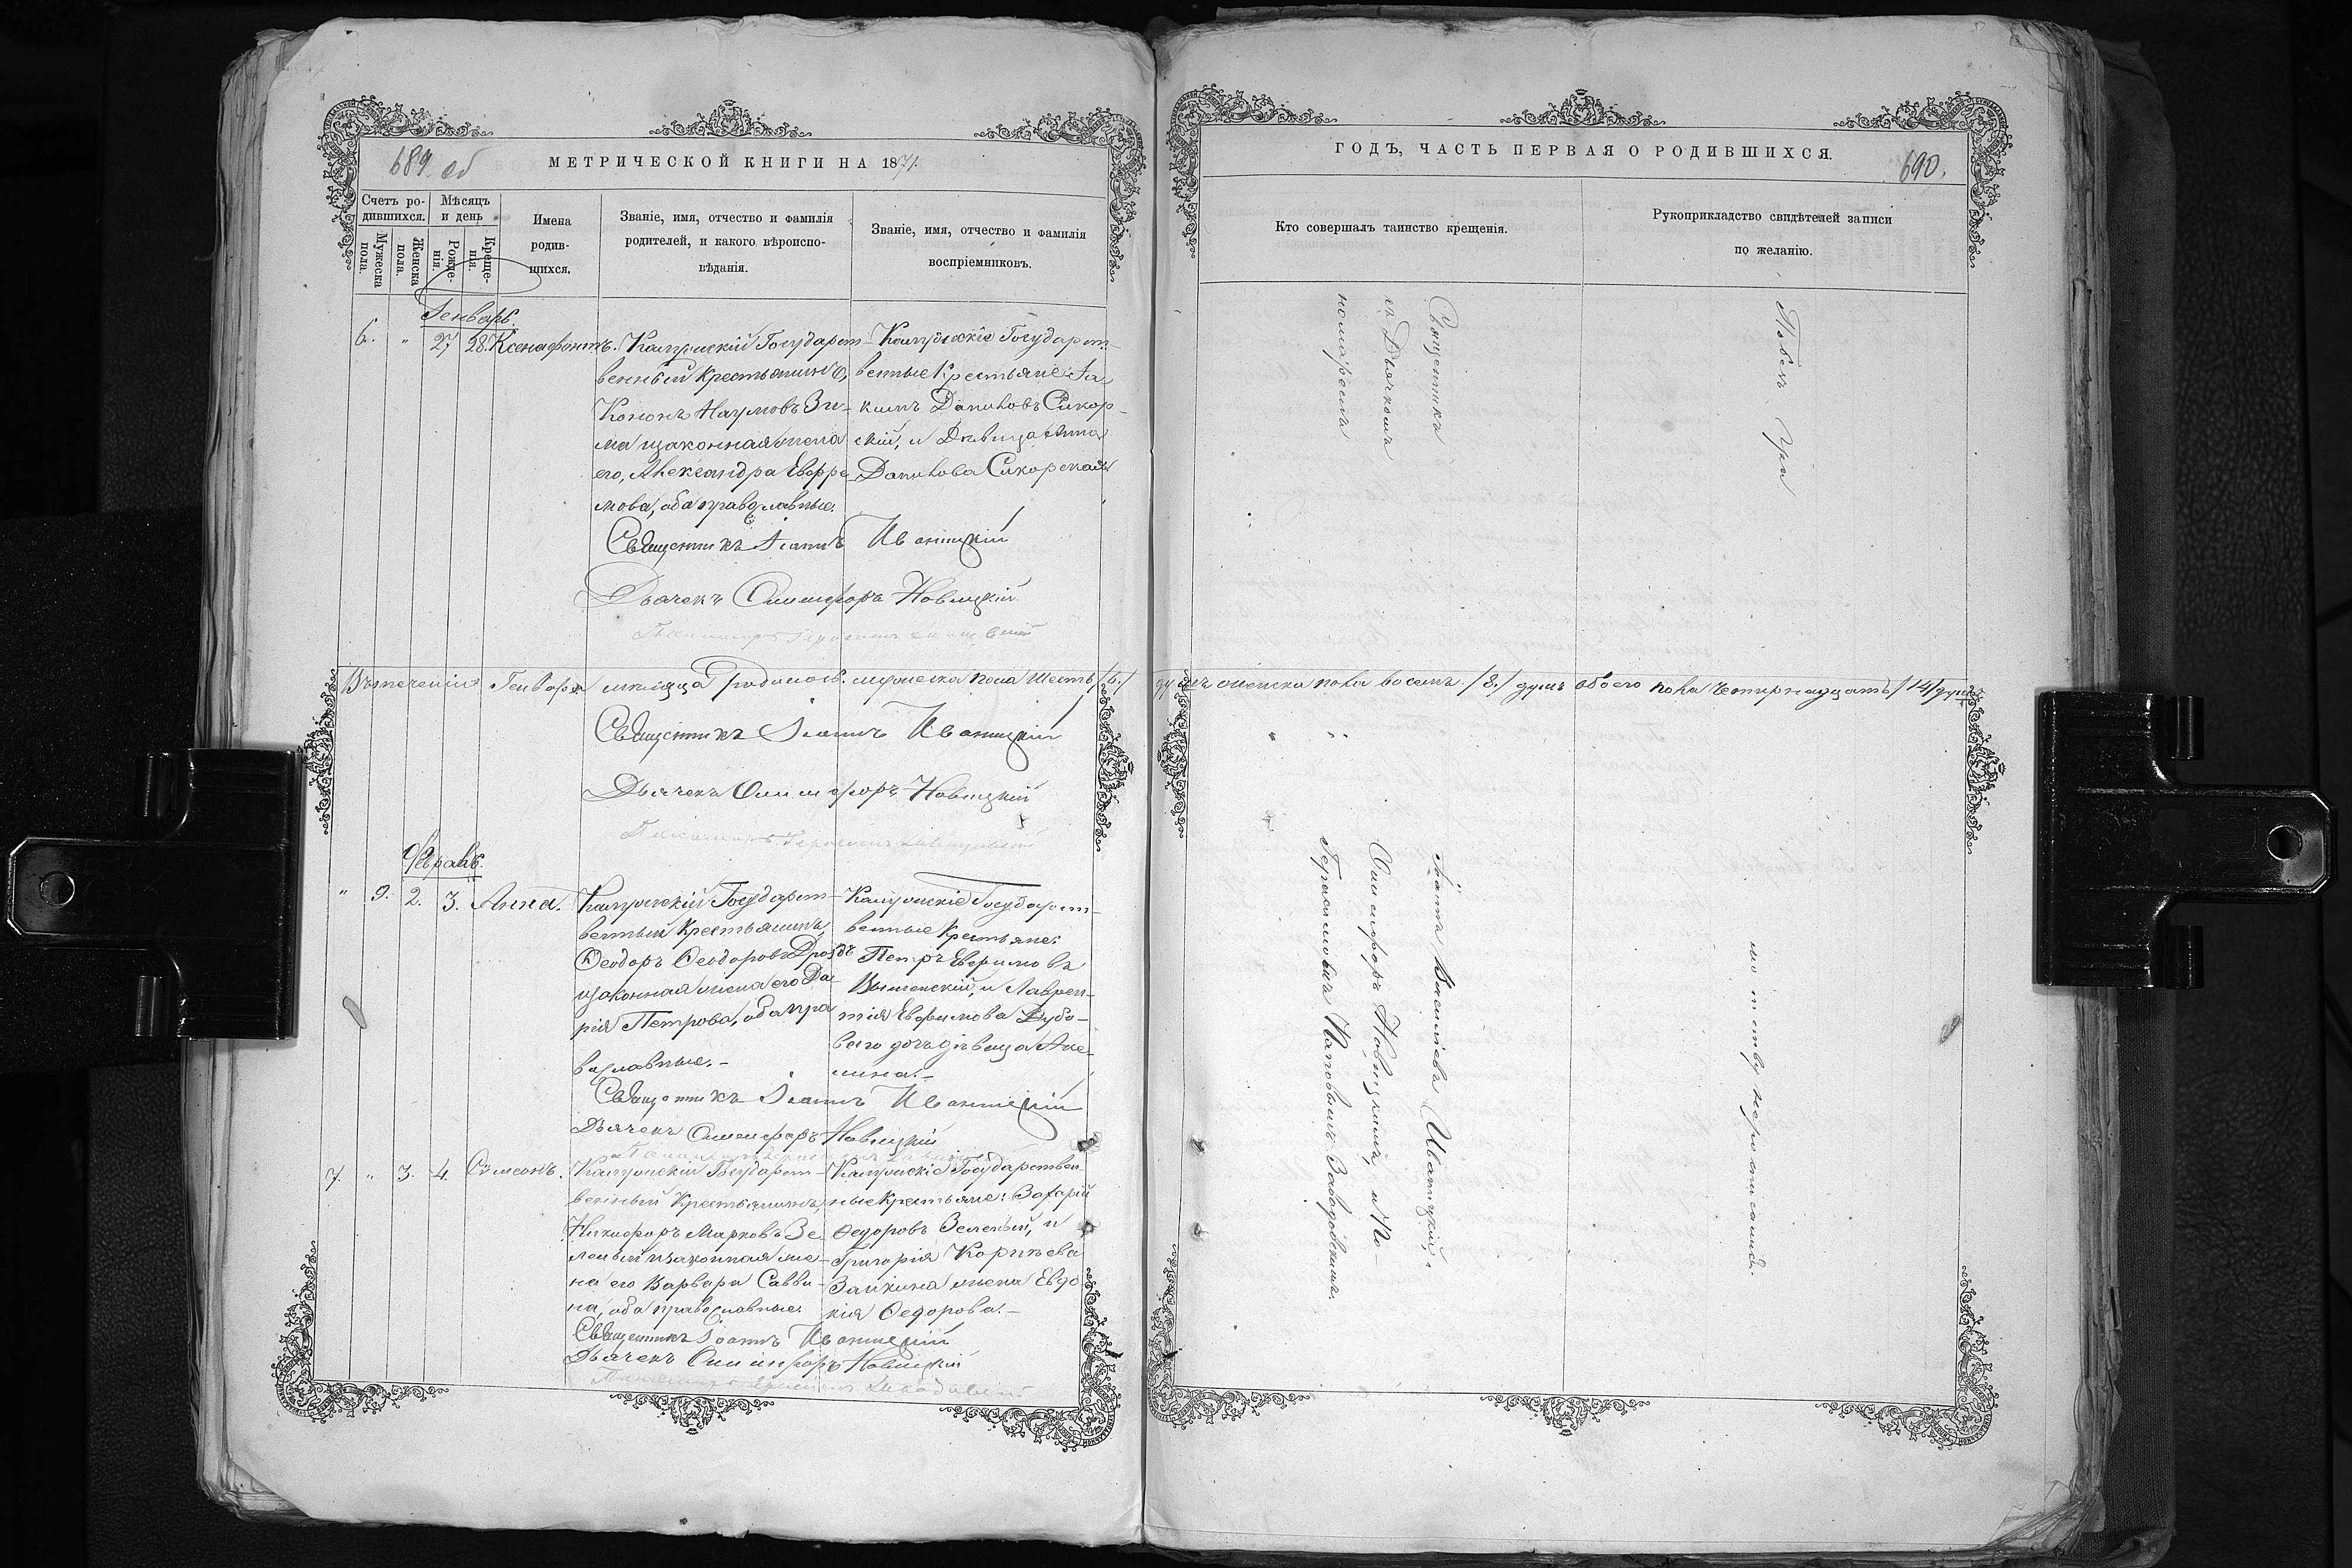 689 об
МЕТРИЧЕСКОЙ КНИГИ НА 1871
Счетъ ро-
дившихся.
Мѣсяцъ
и день
Мужеска
пола.
Женска
пола.
Рожде-
нія.
Креще-
нія.
Имена
родив-
шихся.
Званіе, имя, отчество и фамилія
родителей, и какого вѣроиспо-
вѣданія.
Званіе, имя, отчество и фамилія
воспріемниковъ.
Генварь.
6. " 27 28. Ксенафонтъ.
Государст-
венный Крестьянинъ,
Кононъ Наумовъ Зи-
ма изаконная жена
его, Александра Евфре-
мова, оба православные.
Государст-
венные Крестьяне: Іа
кимъ Даниловъ Сикор-
скій, и Дѣвица Анна
Данилова Сикорская
Священникъ Іоаннъ Иваницкій
Дьячекъ Онисифоръ Новицкій
Въ теченіи Генваря мѣсяца родилось: мужеска пола шесть /6./
Священникъ Іоаннъ Иваницкій
Дьячекъ Онисифоръ Новицкій
Февраль.
" 9. 2. 3. Анна.
Государст-
венный Крестьянинъ,
Ѳеодоръ Ѳеодоровъ Дроздъ
изаконная жена его Да-
рія Петрова, оба пра
вославные.-
Государст-
венные Крестьяне:
Петръ Евфимовъ
и Лаврен-
тія Евфимова Дубо-
ваго дочь дѣвица Аке-
лина.-
Священникъ Іоаннъ Иваницкій
Дьячекъ Онисифоръ Новицкій
7. " 3. 4. Сѵмеонъ.
Государст-
венный Крестьянинъ,
Никифоръ Марковъ Зе
леный изаконная же-
на его Варвара Савви-
на, оба православные.
Государствен-
ные Крестьяне: Захарій
Ѳедоровъ Зеленый, и
Григорія Корнѣева
Заикина жена Евдо
кія Ѳедорова.-
Священникъ Іоаннъ Иваницкій
Дьячекъ Онисифоръ Новицкій
ГОДЪ, ЧАСТЬ ПЕРВАЯ О РОДИВШИХСЯ.
690.
Кто совершалъ таинство крещенія.
Рукоприкладство свидѣтелей записи
по желанію.
Священникъ Іоаннъ Васильевъ Иваницкій,
съ Дьячкомъ Онисифоромъ Новицкимъ, и По-
номаремъ Герасимомъ Завадовскимъ.
душъ женска пола восемь /8./ душъ обоего пола четырнадцать /14/ душъ